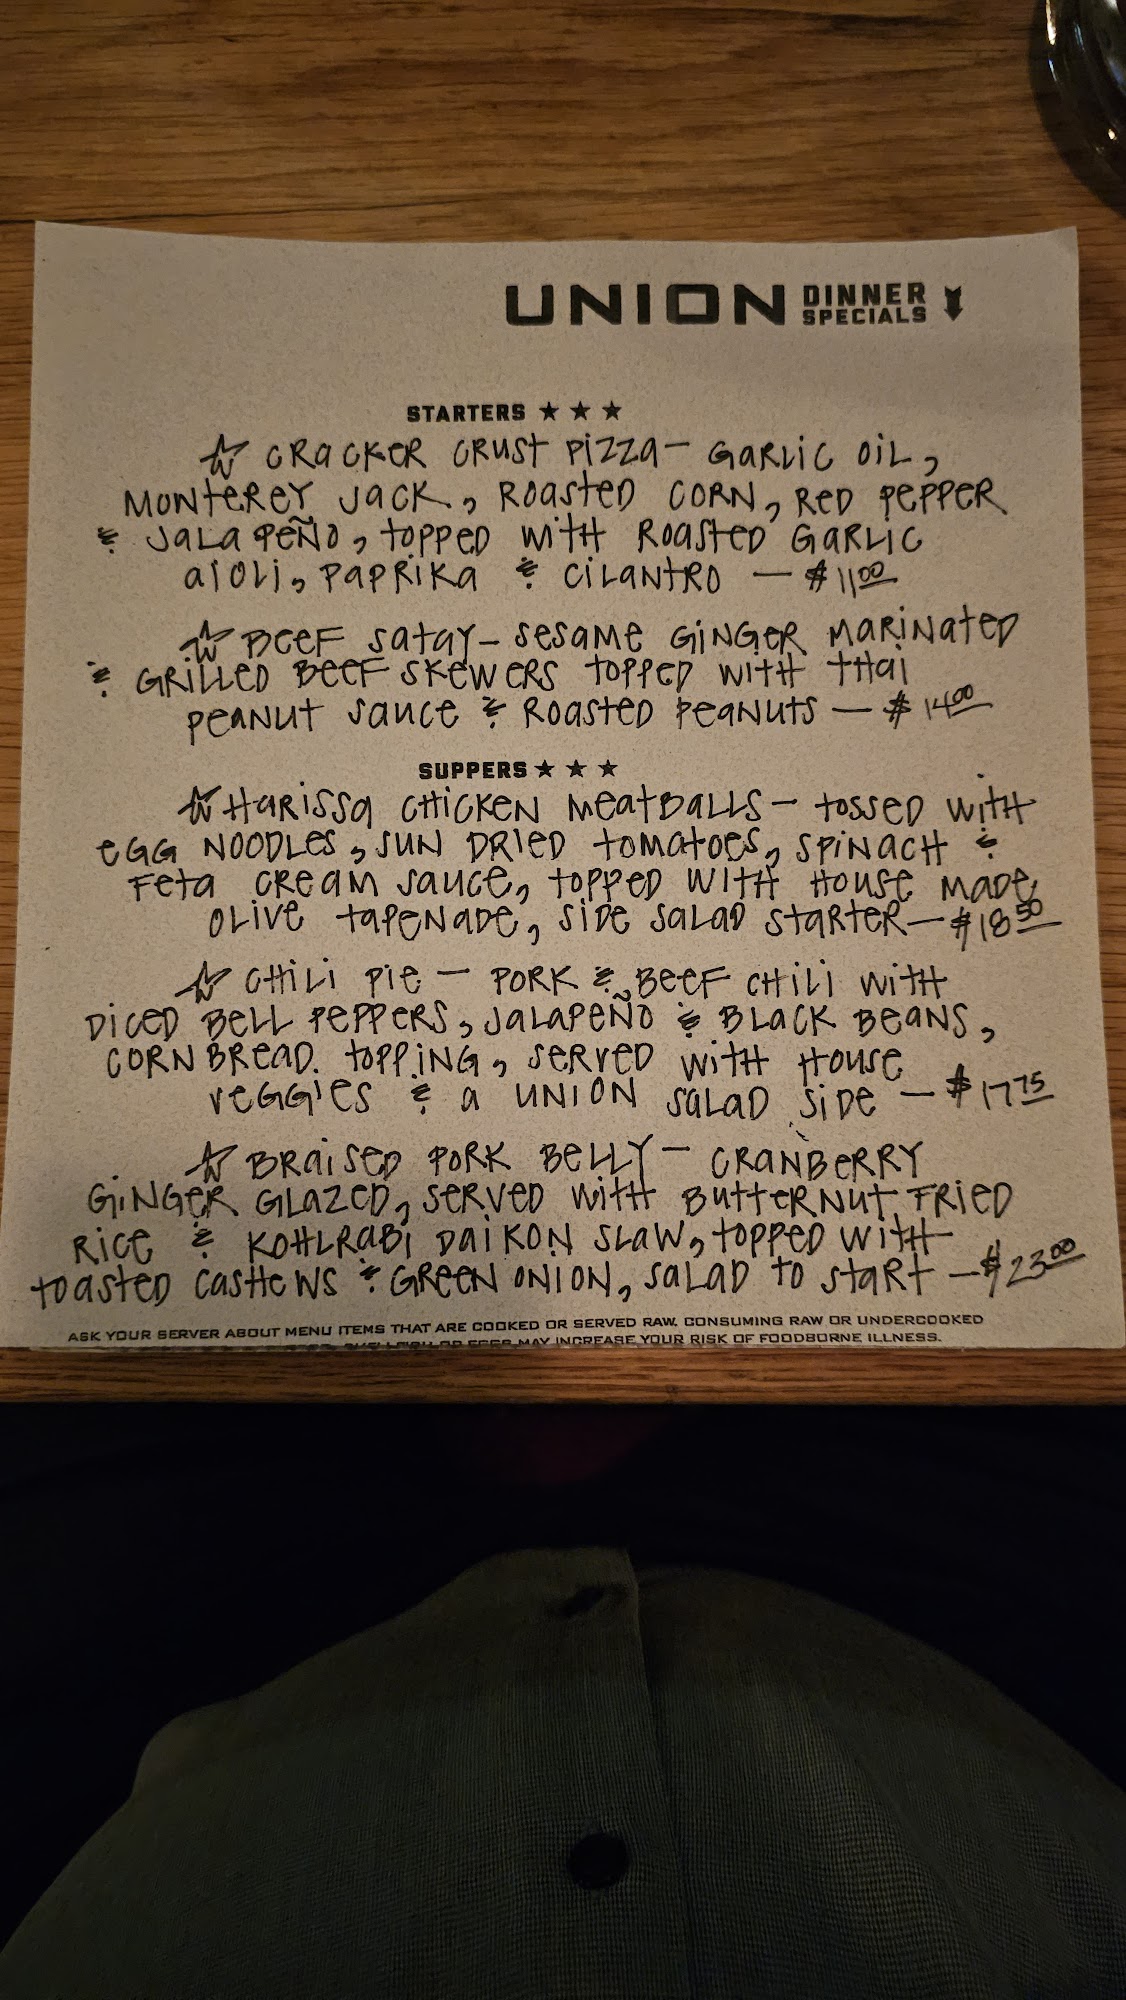 UNION DINNER SPECIALS
STARTERS ★ ★ ★
☆ CRACKER CRUST PIZZA — GARLIC OIL,
MONTEREY JACK, ROASTED CORN, RED PEPPER
& JALAPEÑO, TOPPED WITH ROASTED GARLIC
AIOLI, PAPRIKA & CILANTRO — $11.00
☆ BEEF SATAY — SESAME GINGER MARINATED
& GRILLED BEEF SKEWERS TOPPED WITH THAI
PEANUT SAUCE & ROASTED PEANUTS — $14.00
SUPPERS ★ ★ ★
☆ HARISSA CHICKEN MEATBALLS — TOSSED WITH
EGG NOODLES, SUN DRIED TOMATOES, SPINACH &
FETA CREAM SAUCE, TOPPED WITH HOUSE MADE
OLIVE TAPENADE, SIDE SALAD STARTER — $18.50
☆ CHILI PIE — PORK & BEEF CHILI WITH
DICED BELL PEPPERS, JALAPEÑO & BLACK BEANS,
CORNBREAD TOPPING, SERVED WITH HOUSE
VEGGIES & A UNION SALAD SIDE — $17.75
☆ BRAISED PORK BELLY — CRANBERRY
GINGER GLAZED, SERVED WITH BUTTERNUT FRIED
RICE & KOHLRABI DAIKON SLAW, TOPPED WITH
TOASTED CASHEWS & GREEN ONION, SALAD TO START — $23.00
ASK YOUR SERVER ABOUT MENU ITEMS THAT ARE COOKED OR SERVED RAW. CONSUMING RAW OR UNDERCOOKED
OR EGGS MAY INCREASE YOUR RISK OF FOODBORNE ILLNESS.